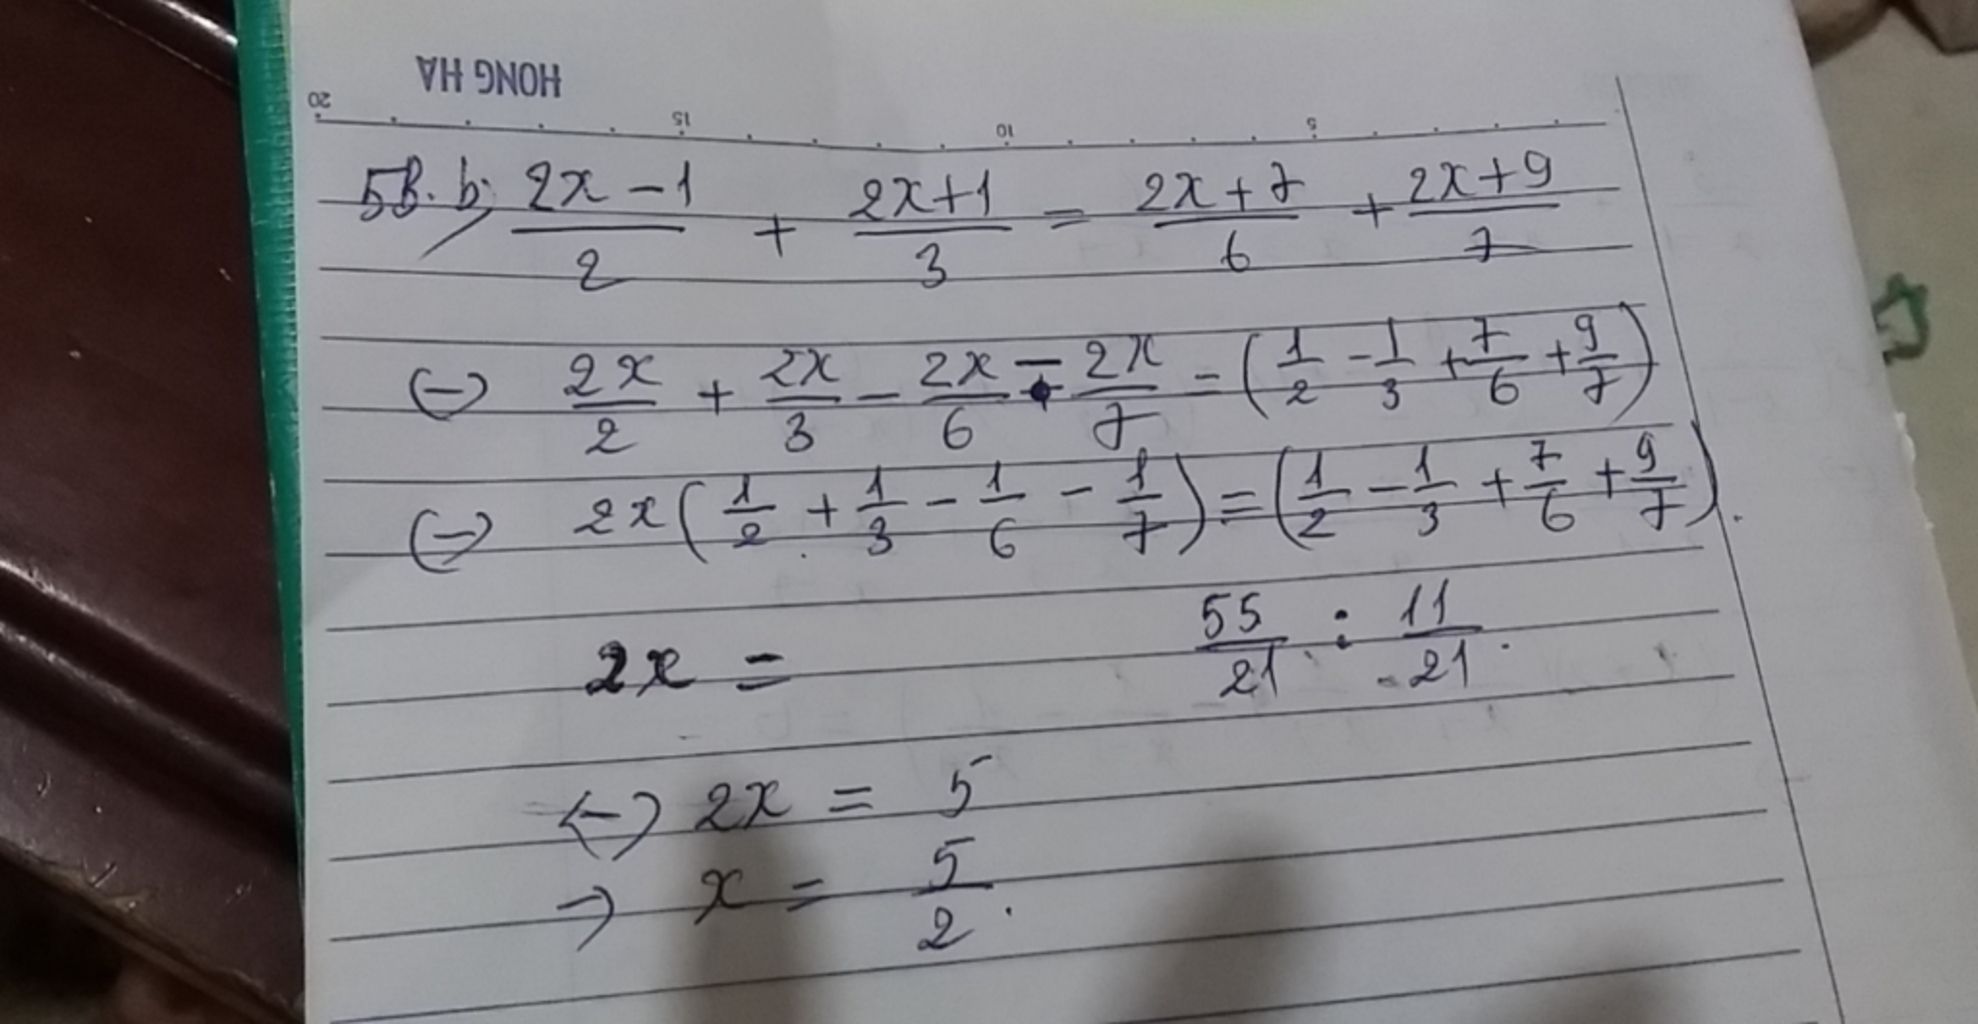 HONG HA
20 15 10 5
5B. b; \frac{2x-1}{2} + \frac{2x+1}{3} = \frac{2x+7}{6} + \frac{2x+9}{7}
(-) \frac{2x}{2} + \frac{2x}{3} - \frac{2x}{6} - \frac{2x}{7} - (\frac{1}{2} - \frac{1}{3} + \frac{7}{6} + \frac{9}{7})
(-) 2x(\frac{1}{2} + \frac{1}{3} - \frac{1}{6} - \frac{1}{7}) = (\frac{1}{2} - \frac{1}{3} + \frac{7}{6} + \frac{9}{7}).
2x = \frac{55}{21} : \frac{11}{21}.
<-) 2x = 5
-) x = \frac{5}{2}.